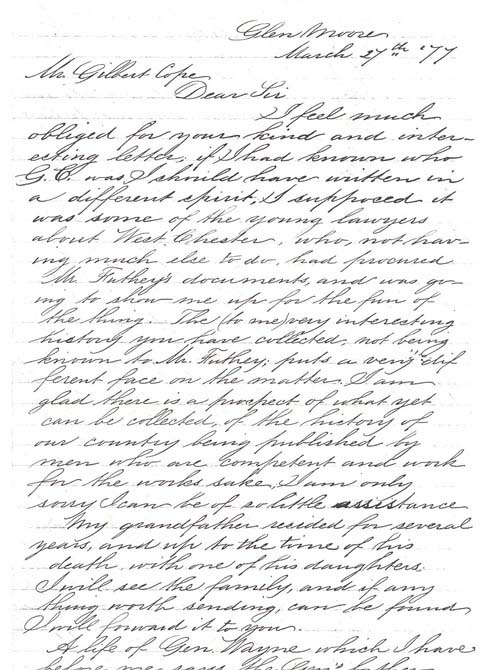 Glen Moore
March 27th '77
Mr. Gilbert Cope
Dear Sir
I feel much
obliged for your kind and inter-
esting letter, if I had known who
G. C. was I should have written in
a different spirit, I supposed it
was some of the young lawyers
about West Chester, who, not hav-
ing much else to do, had procured
Mr. Futhey's documents, and was go-
ing to show me up for the fun of
the thing. The (to me) very interesting
history you have collected, not being
known to Mr. Futhey; puts a very dif
ferent face on the matter, I am
glad there is a prospect of what yet
can be collected, of the history of
our country being published by
men who are competent and work
for the works sake, I am only
sorry I can be of so little assistance
My grandfather resided for several
years, and up to the time of his
death, with one of his daughters.
I will see the family, and if any
thing worth sending, can be found
I will forward it to you.
A life of Gen. Wayne which I have
before me, says, the Gen's